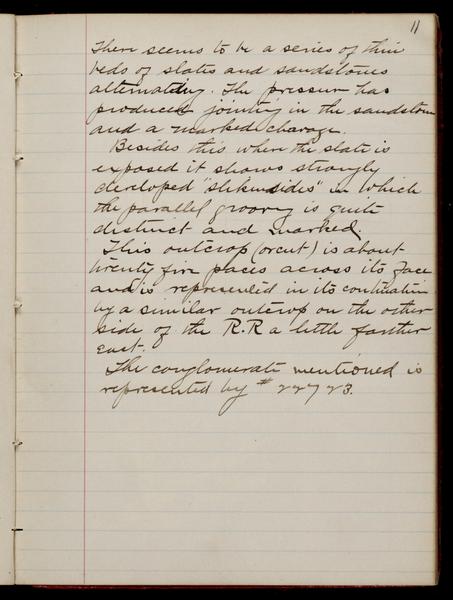 11
There seems to be a series of thin
beds of slates and sandstones
alternating. The pressure has
produced jointing in the sandstone
and a marked
Besides this where the slate is
exposed it shows strongly
developed "slikensides" in which
the parallel grooving is quite
distinct and marked.
This outcrop (or cut) is about
twenty five paces across its face
and is represented in its continuation
by a similar outcrop on the other
side of the R.R a little farther
east.
The conglomerate mentioned is
represented by #